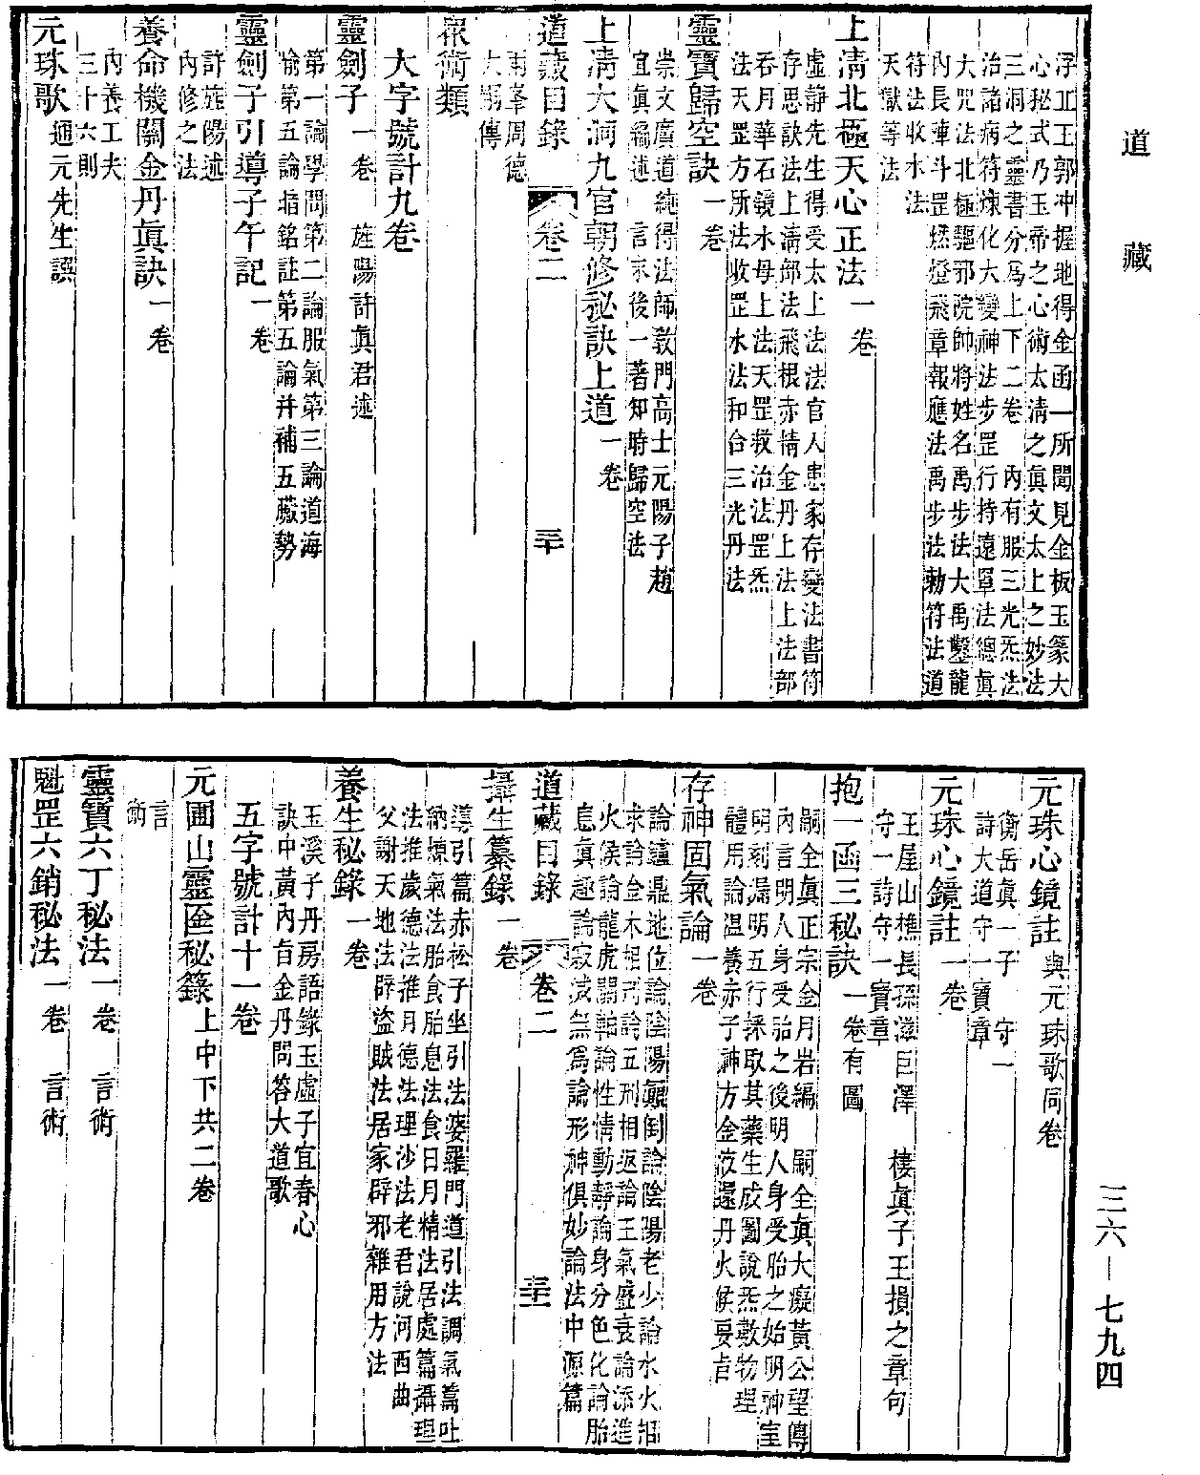 道藏
浮丘王郭冲握地得金函一所聞見金板玉篆大
心秘式乃玉帝之心術太清之眞文太上之妙法
三洞之靈書分爲上下二卷 內有服三光炁法
治諸病符煉化大變神法步罡行持遠罩法總眞
大咒法北極驅邪院帥將姓名禹步法大禹鑿龍
內長蓮斗罡然燈飛章報應法禹步法勅符法道
符法收水法
天獄等法
上淸北極天心正法一卷
虛靜先生得受太上法法官人患家存變法書符
存思訣法上淸部法飛根赤情金丹上法上法部
吞月華石鏡水母上法天罡救治法罡炁
法天罡方所法收罡水法和合三光丹法
靈寶歸空訣一卷
崇文廣道純得法師敎門高士元陽子趙
宜眞編述 言末後一著知時歸空法
上淸大洞九宮朝修秘訣上道一卷
道藏目錄 卷二 三十
南峯周德
大編傳
衆術類
大字號計九卷
靈劍子一卷 旌陽許眞君述
第一論學問第二論服氣第三論道海
喻第五論指銘註第五論幷補五臟勢
靈劍子引導子午記一卷
許旌陽述
內修之法
養命機關金丹眞訣一卷
內養工夫
三十六則
元珠歌通元先生譔
元珠心鏡註與元珠歌同卷
衡岳眞一子 守一
詩大道守一寶章
元珠心鏡註一卷
王屋山樵長孫滋巨澤 棲眞子王損之章句
守一詩守一寶章
抱一函三秘訣一卷有圖
嗣全眞正宗金月岩編 嗣全眞大癡黃公望傳
內言明人身受胎之後明人身受胎之始明神室
明刻漏明五行採取其藥生成圖說炁數物理
體用論溫養赤子神方金液還丹火候要旨
存神固氣論一卷
論爐鼎地位論陰陽顚倒論陰陽老少論水火相
求論金木相刑論五刑相返論王氣盛衰論添進
火候論龍虎關軸論性情動靜論身分色化論胎
息眞趣論寂滅無爲論形神俱妙論法中源篇
道藏目錄 卷二 三十一
攝生纂錄一卷
導引篇赤松子坐引法婆羅門道引法調氣篇吐
納煉氣法胎食胎息法食日月精法居處篇攝理
法推歲德法推月德法理沙法老君說河西曲
父謝天地法辟盜賊法居家辟邪雜用方法
養生秘錄一卷
玉溪子丹房語錄玉虛子宜春心
訣中黃內旨金丹問答大道歌
五字號計十一卷
元圃山靈匧秘籙上中下共二卷
言
術
靈寶六丁秘法一卷 言術
魁罡六鎖秘法一卷 言術
三六—七九四